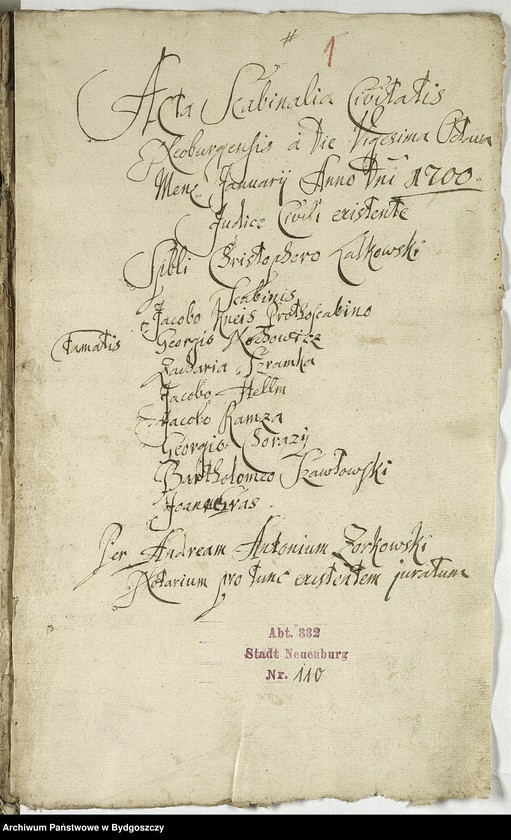 #
1
Acta Scabinalia Civitatis
Neoburgensis â Die Vigesima Octava
Mens January Anno Dni 1700.
Judice Civili existente
Spbli Christophoro Calkowski
Scabinis
Jacobo Kneis Prothoscabino
Georgio
Zacharia Szramka
Jacobo Hellm
Jacobo Ramza
Georgio Chorazy
Bartholomeo
Joanne
Per Andream Antonium Zorkowski
Notarium pro tunc existentem juratum
Abt. 332
Stadt Neuenburg
Nr. 110
Archiwum Państwowe w Bydgoszczy